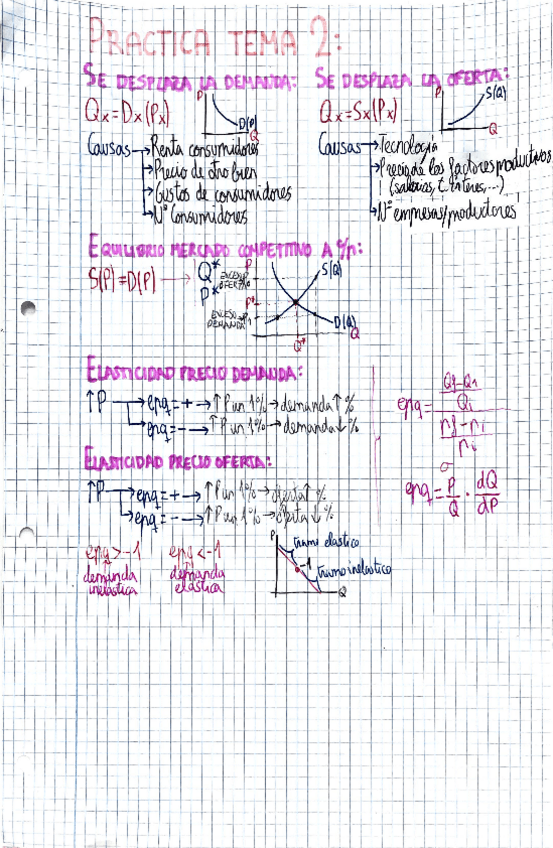 PRACTICA TEMA 2:
SE DESPLAZA LA DEMANDA:
Qx=Dx(Px)
P
D(P)
Q
Causas → Renta consumidores
→ Precio de otro bien
→ Gustos de consumidores
→ Nº Consumidores
SE DESPLAZA LA OFERTA:
Qx=Sx(Px)
P
S(Q)
Q
Causas → Tecnología
→ Precio de los factores productivos
(salarios, t. interes,...)
→ Nº empresas/productores
EQUILIBRIO MERCADO COMPETITIVO A c/p:
S(P)=D(P) → Q*
P*
P
EXCESO
OFERTA
P*
EXCESO
DEMANDA
P1
S(Q)
D(Q)
Q
Q*
ELASTICIDAD PRECIO DEMANDA:
↑P → epq=+ → ↑P un 1% → demanda ↑ %
→ epq=- → ↑P un 1% → demanda ↓ %
ELASTICIDAD PRECIO OFERTA:
↑P → epq=+ → ↑P un 1% → oferta ↑ %
→ epq=- → ↑P un 1% → oferta ↓ %
epq>-1
demanda
inelastica
epq<-1
demanda
elastica
P
tramo elastico
-1
tramo inelastico
Q
epq=
Qi
epq= P/Q · dQ/dP